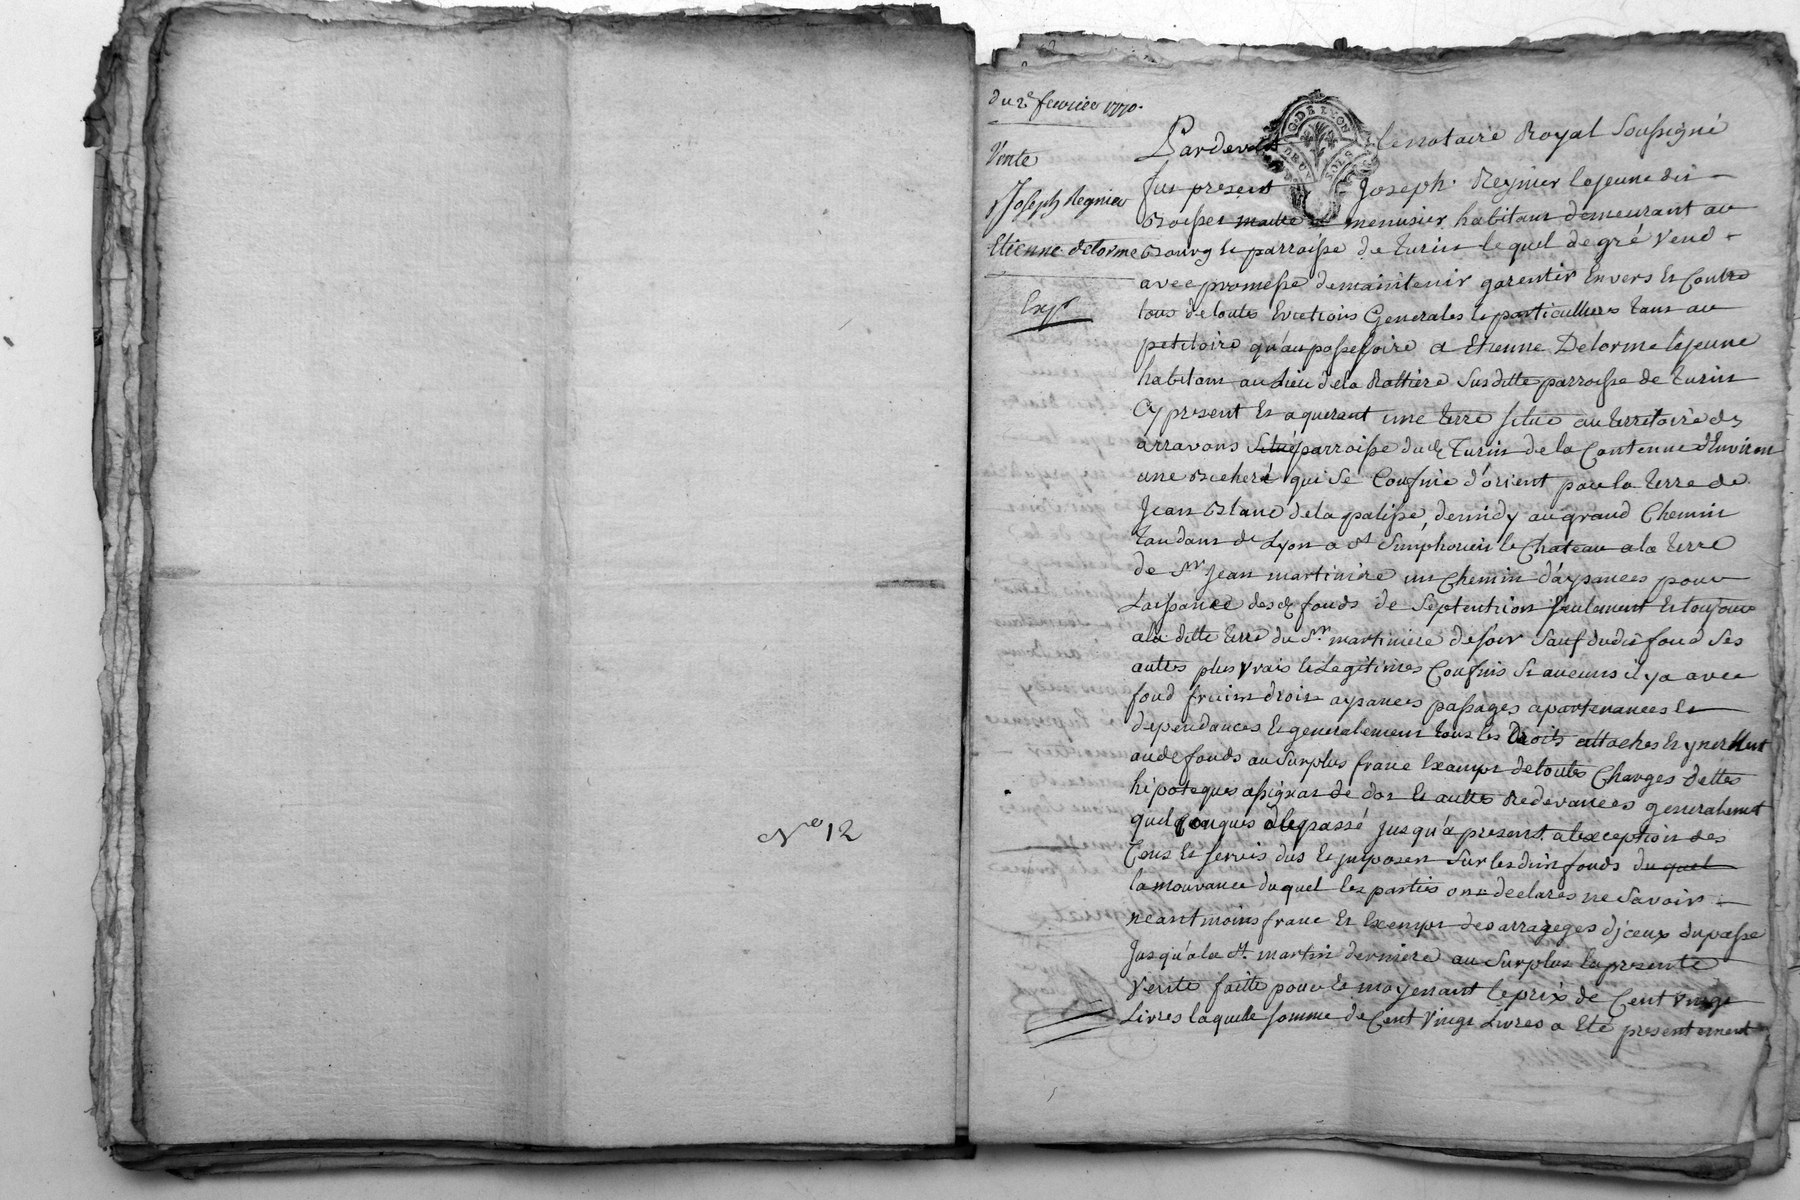 N° 12
du 2e fevrier 1770.
Vente
Joseph Regnier
Etienne delorme
Exp.
G. DE LYON
Pardevant le notaire Royal Soussigné
fut present Joseph Reynier le jeune dit
menusier habitant demeurant au
Bourg & parroisse de Turin lequel de gré vend
avec promesse de maintenir garentir Envers Et Contre
tous de toutes Evictions Generales & particulliers tant au
petitoire qu'au possessoire a Etienne Delorme le jeune
habitant au Lieu de la Rattiere Susditte parroisse de Turin
Cy present Et aquerant une terre situé au territoire des
arravons Situé parroisse dud. Turin de la Contenue d'Environ
une Bicheré qui Se Confine d'orient par la terre de
Jean Blanc de la palisse, de midy au grand Chemin
tandant de Lyon a St Simphorien le Chateau a la terre
de Sr Jean martiniere un Chemin d'aysances pour
L'aisance desd. fonds de Septentrion seulement Et toujour
a la ditte terre du Sr martiniere de soir Sauf dudit fond Ses
autres plus vrais & Legitimes Confins Si aucuns il y a avec
fond fruits droits aysances passages apartenances Et
dependances & generalement tous les Droits attachés Et
aud. fonds au Surplus franc Exampt de toutes Charges dettes
hipoteques & autres Redevances generalement
quelconques de le passé Jusqu'a present a l'exception des
Cens Et servis dus & imposer Sur lesdits fonds duquel
la mouvance duquel les parties ont declarés ne Savoir
neantmoins franc Et Exempt des arrazeges d'jceux du passé
Jusqu'a la St. martin derniere au Surplus la presente
Vente faitte pour & moyenant le prix de Cent Vingt
Livres laquelle somme de Cent Vingt Livres a Eté presentement